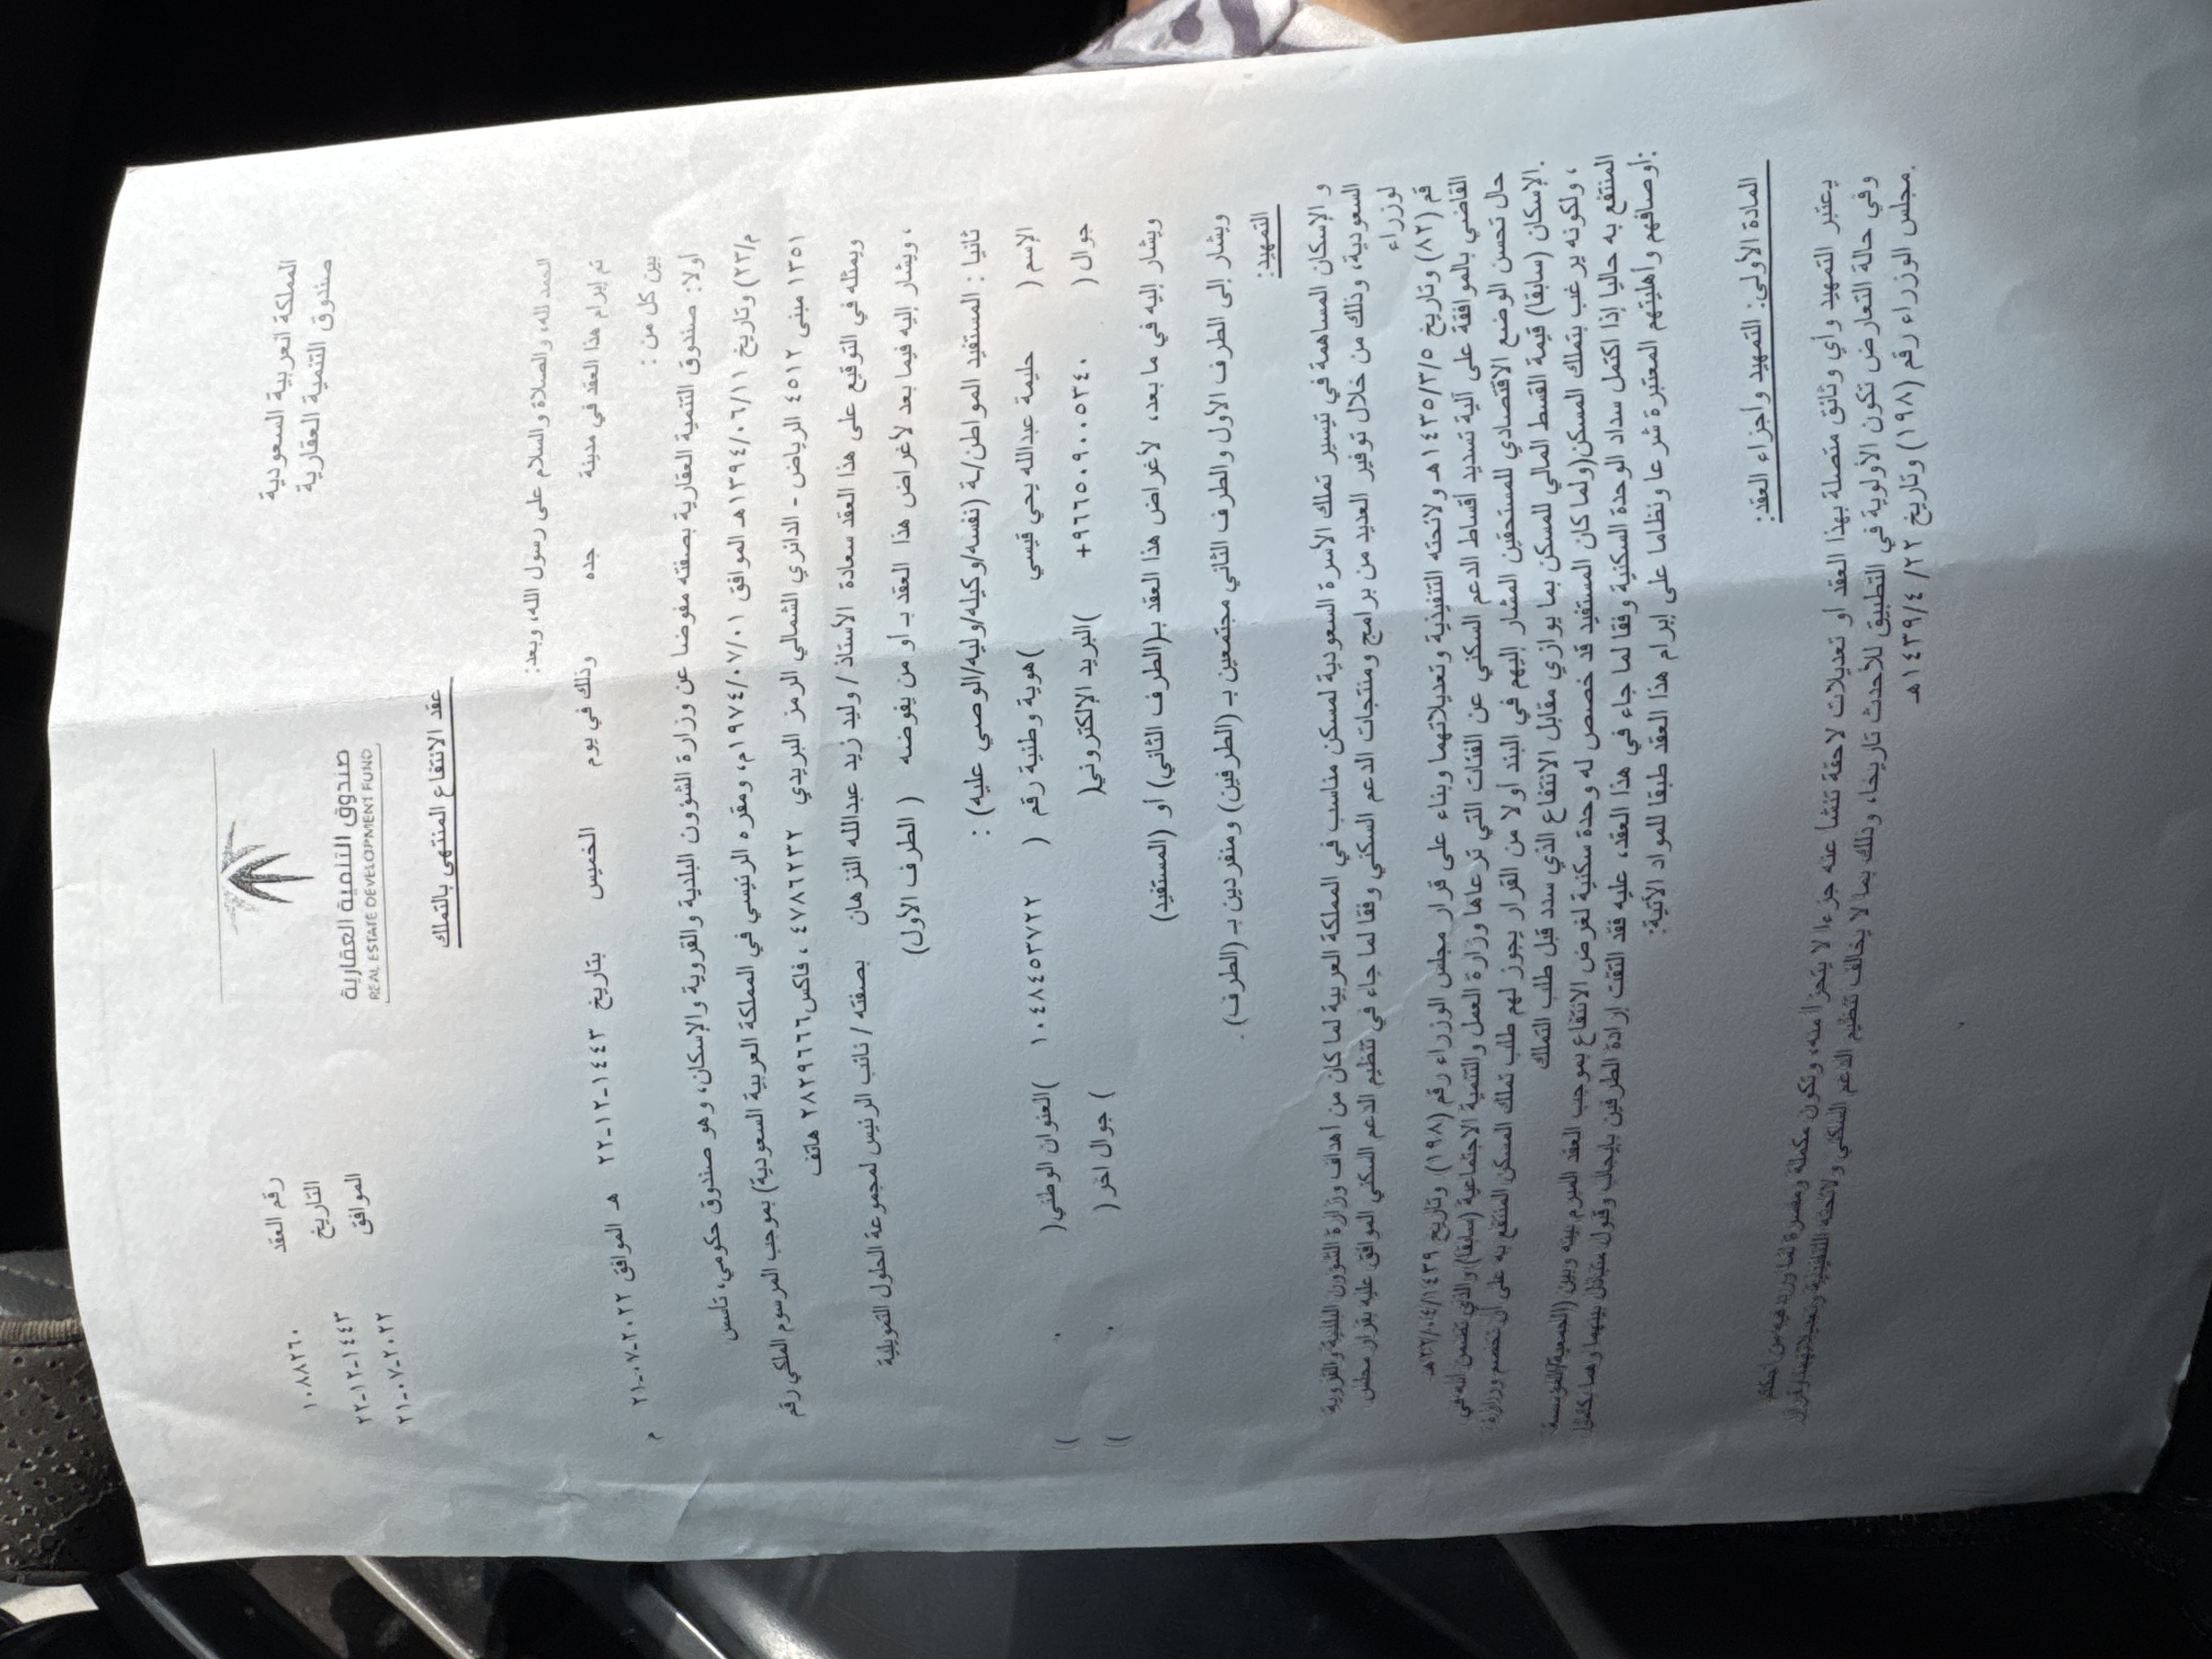 المملكة العربية السعودية
صندوق التنمية العقارية
صندوق التنمية العقارية
REAL ESTATE DEVELOPMENT FUND
رقم العقد ١٠٨٨٢٦٠
التاريخ ٢٢-١٢-١٤٤٣
الموافق ٢١-٠٧-٢٠٢٢
عقد الانتفاع المنتهي بالتملك
الحمد لله، والصلاة والسلام على رسول الله، وبعد:
تم إبرام هذا العقد في مدينة جده وذلك في يوم الخميس بتاريخ ٢٢-١٢-١٤٤٣ هـ الموافق ٢١-٠٧-٢٠٢٢ م
بين كل من :
أولا: صندوق التنمية العقارية بصفته مفوضا عن وزارة الشؤون البلدية والقروية والإسكان، وهو صندوق حكومي، تأسس
م/٢٣) وتاريخ ١٣٩٤/٠٦/١١هـ الموافق ١٩٧٤/٠٧/٠١م، ومقره الرئيسي في المملكة العربية السعودية) بموجب المرسوم الملكي رقم
١٣٥١ مبنى ٤٥١٢ الرياض - الدائري الشمالي الرمز البريدي ٤٧٨٦٢٣٢ ، فاكس٢٨٢٩٦٦٦ هاتف
ويمثله في التوقيع على هذا العقد سعادة الأستاذ / وليد زيد عبدالله النزهان بصفته / نائب الرئيس لمجموعة الحلول التمويلية
، ويشار إليه فيما بعد لأغراض هذا العقد بـ أو من يفوضه ( الطرف الأول)
ثانيا : المستفيد المواطن/ـة (نفسه/وكيله/وليه/الوصي عليه) :
الإسم ( حليمة عبدالله يحي قيسي )هوية وطنية رقم ( ١٠٤٨٤٥٣٧٢٢ )العنوان الوطني( )
جوال ( +٩٦٦٥٠٩٠٠٥٣٤٠ )البريد الإلكتروني( ) جوال اخر ( )
ويشار إليه في ما بعد، لأغراض هذا العقد بـ(الطرف الثاني) أو (المستفيد)
ويشار إلى الطرف الأول والطرف الثاني مجتمعين بـ (الطرفين) ومنفردين بـ (الطرف).
التمهيد:
و الإسكان المساهمة في تيسير تملك الأسرة السعودية لمسكن مناسب في المملكة العربية لما كان من أهداف وزارة الشؤون البلدية والقروية
السعودية، وذلك من خلال توفير العديد من برامج ومنتجات الدعم السكني وفقا لما جاء في تنظيم الدعم السكني الموافق عليه بقرار مجلس
لوزراء
قم (٨٢) وتاريخ ١٤٣٥/٣/٥هـ ولائحته التنفيذية وتعديلاتهما وبناء على قرار مجلس الوزراء رقم (١٩٨) وتاريخ ١٤٣٩/٠٤/٢٢هـ
القاضي بالموافقة على آلية تسديد أقساط الدعم السكني عن الفئات التي ترعاها وزارة العمل والتنمية الاجتماعية (سابقا) والذي تضمن أنه في
حال تحسن الوضع الاقتصادي للمستحقين المشار إليهم في البند أولا من القرار يجوز لهم طلب تملك المسكن المنتفع به على أن تخصم وزارة
.الإسكان (سابقا) قيمة القسط المالي للمسكن بما يوازي مقابل الانتفاع الذي سدد قبل طلب التملك
، ولكونه يرغب بتملك المسكن(ولما كان المستفيد قد خصص له وحدة سكنية لغرض الانتفاع بموجب العقد المبرم بينه وبين (الجمعية/المؤسسة
المنتفع به حاليا إذا اكتمل سداد الوحدة السكنية وفقا لما جاء في هذا العقد، عليه فقد التقت إرادة الطرفين بإيجاب وقبول متبادل بينهما وهما بكامل
:أوصافهم وأهليتهم المعتبرة شرعا ونظاما على إبرام هذا العقد طبقا للمواد الآتية:
المادة الأولى: التمهيد واجزاء العقد:
يعتبر التمهيد وأي وثائق متصلة بهذا العقد أو تعديلات لاحقة تنشأ عنه جزءا لا يتجزأ منه، وتكون مكملة ومفسرة لما ورد فيه من أحكام
وفي حالة التعارض تكون الأولوية في التطبيق للأحدث تاريخا، وذلك بما لا يخالف تنظيم الدعم السكني ولائحته التنفيذية وتعديلاتهما وقرار
.مجلس الوزراء رقم (١٩٨) وتاريخ ١٤٣٩/٤/٢٢هـ